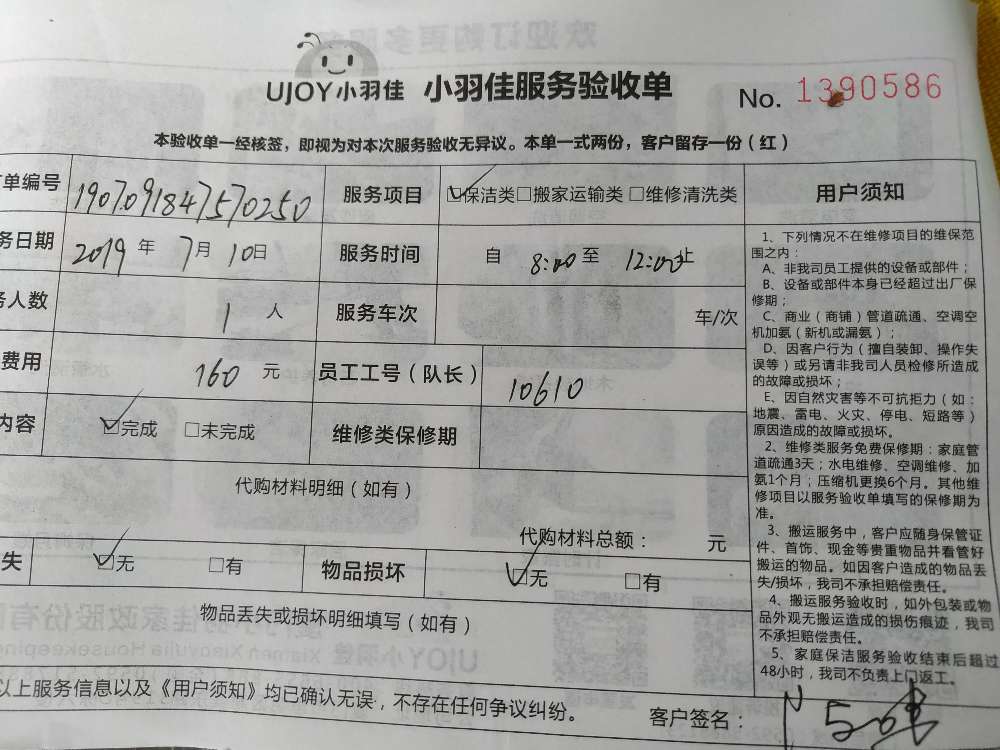 UJOY小羽佳 小羽佳服务验收单 No. 1390586
本验收单一经核签，即视为对本次服务验收无异议。本单一式两份，客户留存一份（红）
单编号 1907091847570250 服务项目 保洁类□搬家运输类□维修清洗类 用户须知
务日期 2019年7月10日 服务时间 自8:00至12:00止
务人数 1人 服务车次 车/次
费用 160元 员工工号（队长） 10610
内容 完成 □未完成 维修类保修期
代购材料明细（如有）
代购材料总额： 元
失 无 □有 物品损坏 无 □有
物品丢失或损坏明细填写（如有）
以上服务信息以及《用户须知》均已确认无误，不存在任何争议纠纷。
客户签名：
1、下列情况不在维修项目的维保范
围之内：
A、非我司员工提供的设备或部件；
B、设备或部件本身已经超过出厂保
修期；
C、商业（商铺）管道疏通、空调空
机加氨（新机或漏氨）；
D、因客户行为（擅自装卸、操作失
误等）或另请非我司人员检修所造成
的故障或损坏；
E、因自然灾害等不可抗拒力（如：
地震、雷电、火灾、停电、短路等）
原因造成的故障或损坏。
2、维修类服务免费保修期：家庭管
道疏通3天；水电维修、空调维修、加
氨1个月；压缩机更换6个月。其他维
修项目以服务验收单填写的保修期为
准。
3、搬运服务中，客户应随身保管证
件、首饰、现金等贵重物品并看管好
搬运的物品。如因客户造成的物品丢
失/损坏，我司不承担赔偿责任。
4、搬运服务验收时，如外包装或物
品外观无搬运造成的损伤痕迹，我司
不承担赔偿责任。
5、家庭保洁服务验收结束后超过
48小时，我司不负责上门返工。